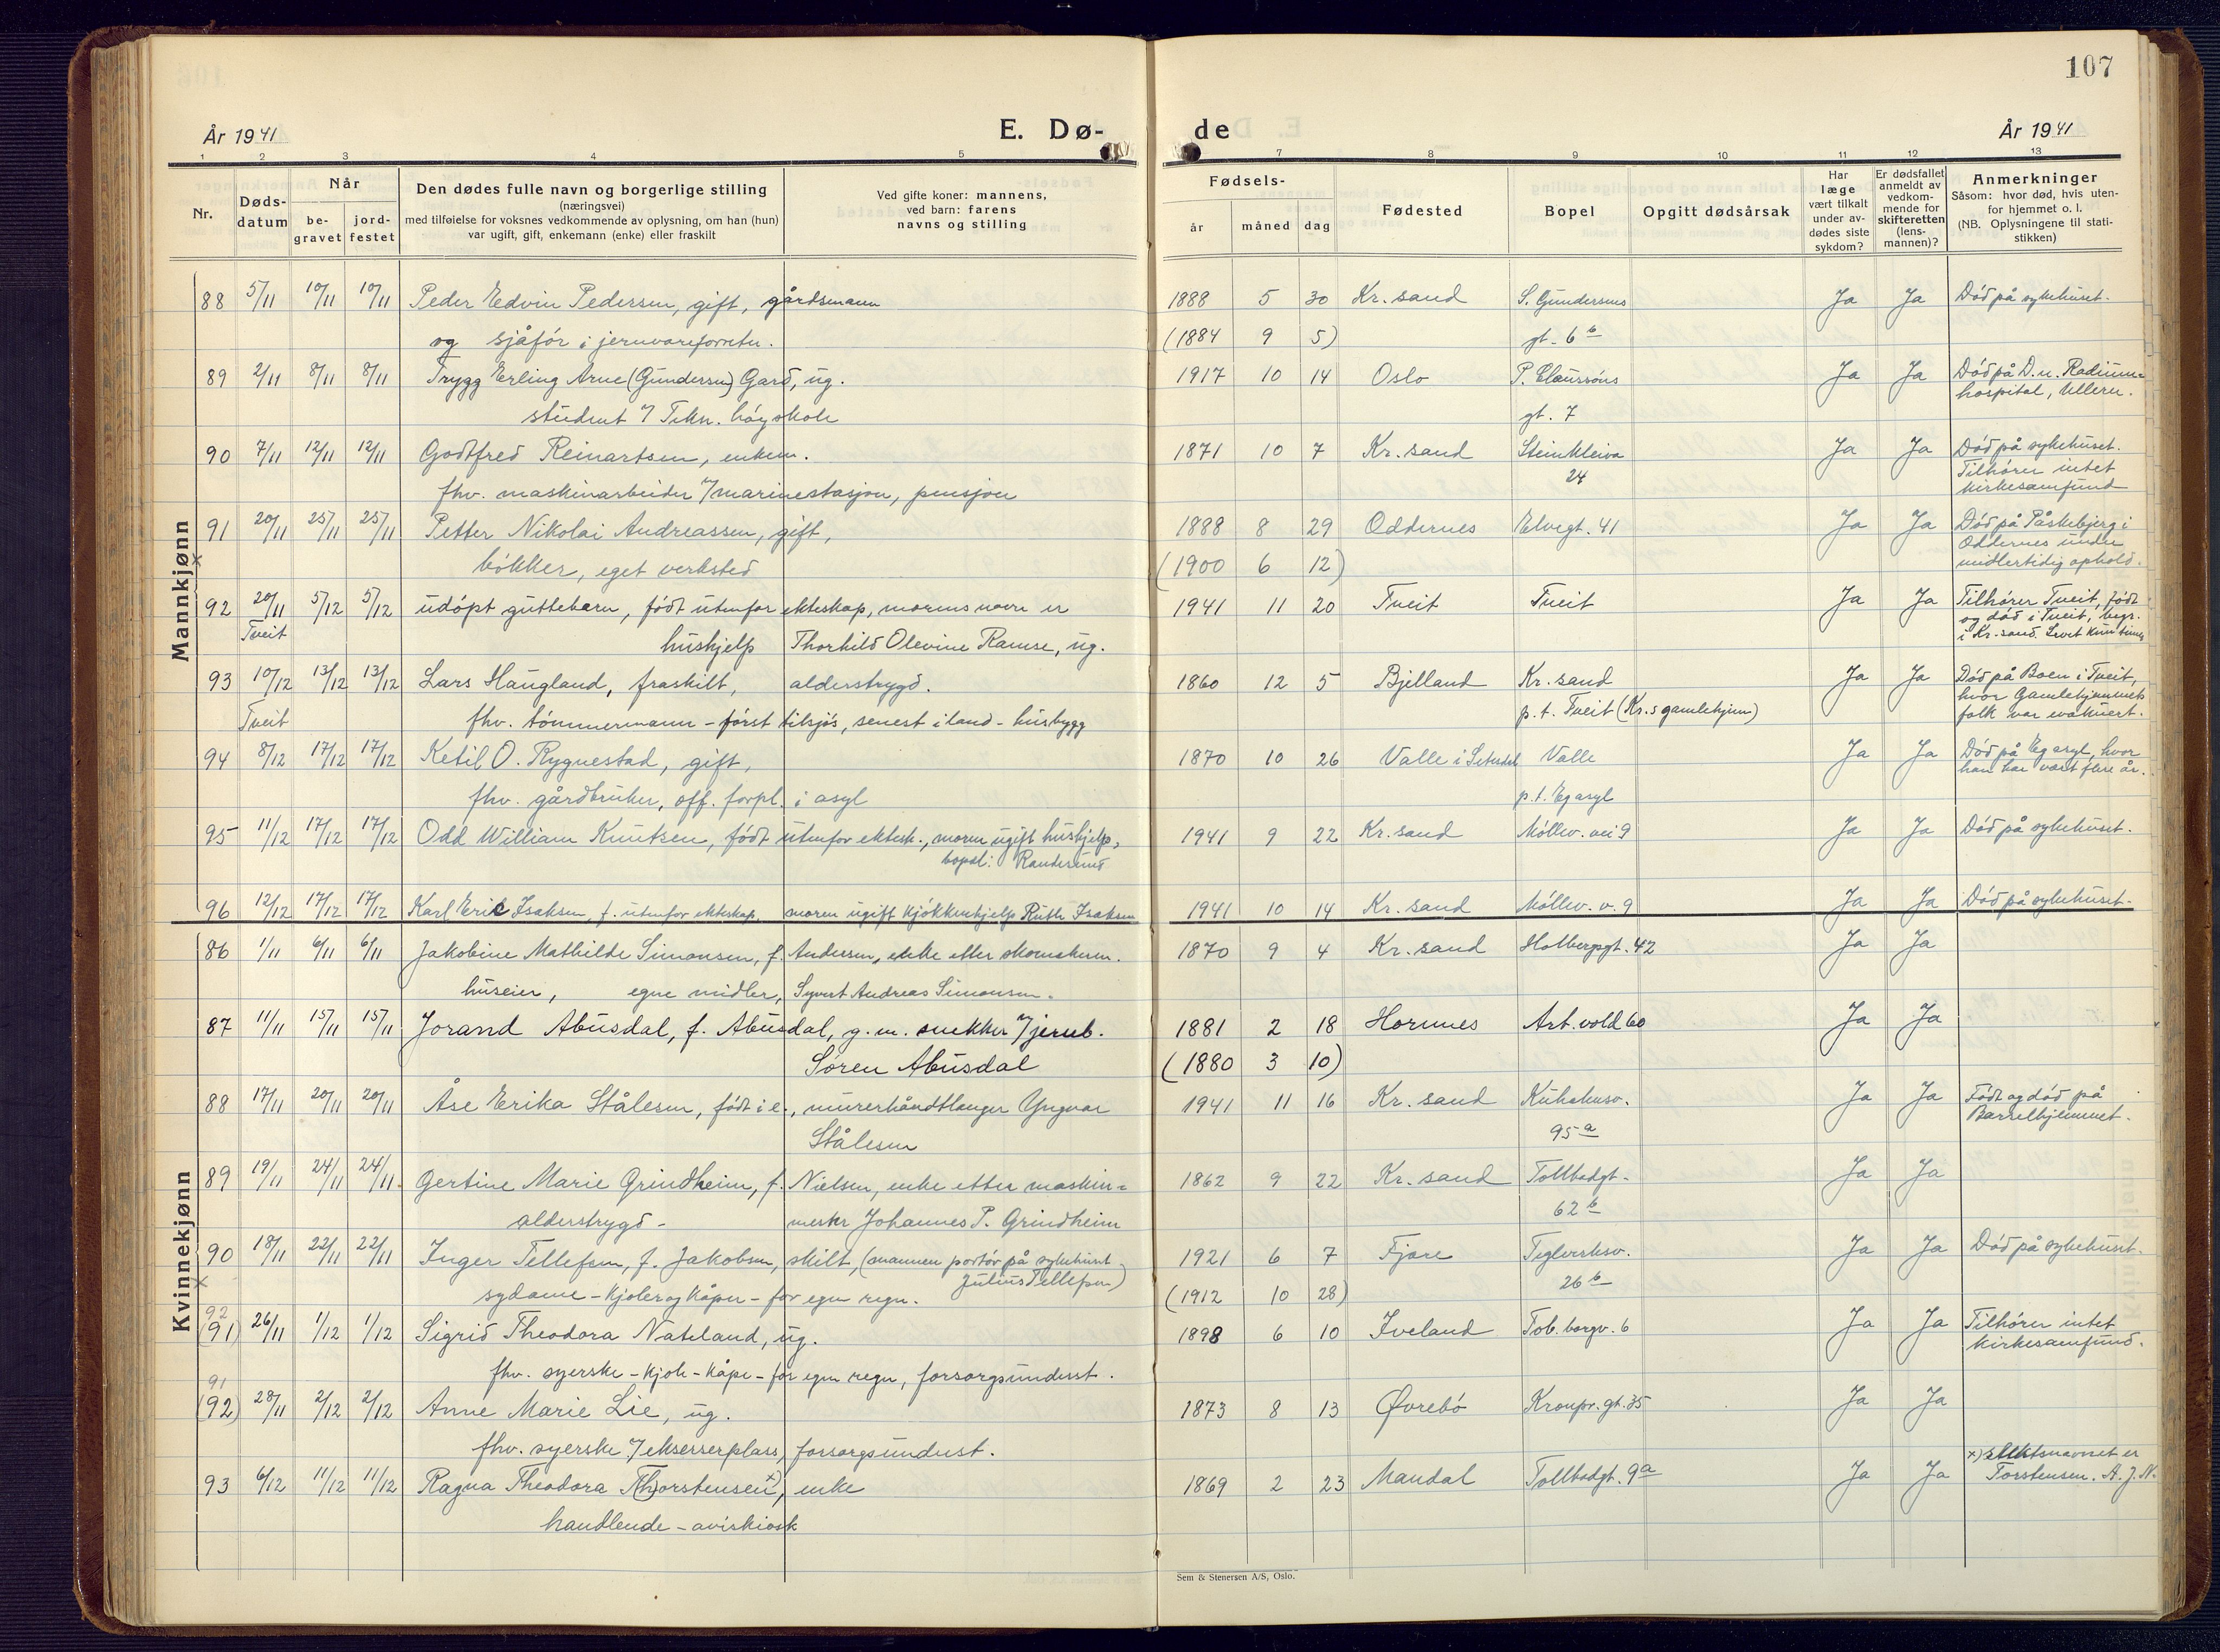 107
År 1941
E. Dø-
de
År 1941
1 2 3 4 5 7 8 9 10 11 12 13
Nr.
Døds-
datum
Når
be-
gravet
jord-
festet
Den dødes fulle navn og borgerlige stilling
(næringsvei)
med tilføielse for voksnes vedkommende av oplysning, om han (hun)
var ugift, gift, enkemann (enke) eller fraskilt
Ved gifte koner: mannens,
ved barn: farens
navns og stilling
Fødsels-
år måned dag
Fødested
Bopel
Opgitt dødsårsak
Har
læge
vært tilkalt
under av-
dødes siste
sykdom?
Er dødsfallet
anmeldt av
vedkom-
mende for
skifteretten
(lens-
mannen)?
Anmerkninger
Såsom: hvor død, hvis uten-
for hjemmet o. l.
(NB. Oplysningene til stati-
stikken)
Mannkjønn
88 5/11 10/11 10/11 Peder Edvin Pedersen, gift, gårdsmann 1888 5 30 Kr. sand S. Gundersens Ja Ja Død på sykehuset.
og sjåfór i jernvareforretn. (1884 9 5) gt. 6 b
89 2/11 8/11 8/11 Trygg Erling Arne (Gundersen) Gard, ug. 1917 10 14 Oslo P. Claussóns Ja Ja Død på D. n. Radium=
student v/ Tekn. högskole gt. 7 hospital, Ullern.
90 7/11 12/11 12/11 Godtfred Reinartsen, enkem. 1871 10 7 Kr. sand Steinkleiva Ja Ja Død på sykehuset.
fhv. maskinarbeider v/ marinestasjon, pensjon 24 Tilhórer intet
kirkesamfund
91 20/11 25/11 25/11 Petter Nikolai Andreassen, gift, 1888 8 29 Oddernes Elvegt. 41 Ja Ja Død på Påskebjerg i
bókker, eget verksted (1900 6 12) Oddernes under
midlertidig ophold.
92 20/11 5/12 5/12 udópt guttebarn, fódt utenfor ekteskap, morens navn er 1941 11 20 Tveit Tveit Ja Ja Tilhórer Tveit, fódt
Tveit hushjelp Thorhild Olevine Ramse, ug. og dód i Tveit, begr.
i Kr. sand. Levet kun timer
93 10/12 13/12 13/12 Lars Haugland, fraskilt, alderstrygd. 1860 12 5 Bjelland Kr. sand Ja Ja Dód på Boen i Tveit,
Tveit fhv. tómmermann - fórst tilsjós, senest i land - husbygg p. t. Tveit (Kr.s gamlehjem) hvor Gamlehjemmets
folk var evakuert.
94 8/12 17/12 17/12 Ketil O. Rygnestad, gift, 1870 10 26 Valle i Setesdal Valle Ja Ja Dód på Eg asyl, hvor
fhv. gårdbruker, off. forpl. i asyl p. t. Eg asyl han har vært flere år.
95 11/12 17/12 17/12 Odd William Knutsen, fódt utenfor ektesk., moren ugift hushjelp, 1941 9 22 Kr. sand Móllev. vei 9 Ja Ja Dód på sykehuset.
bopel: Randesund
96 12/12 17/12 17/12 Karl Eric Isaksen, f. utenfor ekteskap, moren ugift kjókkenhjelp Ruth Isaksen 1941 10 14 Kr. sand Móllev. v. 9 Ja Ja Dód på sykehuset.
Kvinnekjønn
86 1/11 6/11 6/11 Jakobine Mathilde Simonsen, f. Andersen, enke etter skomakerm. 1870 9 4 Kr. sand Holbergsgt. 42 Ja Ja
huseier, egne midler, Syvert Andreas Simonsen.
87 11/11 15/11 15/11 Jorand Abusdal, f. Abusdal, g. m. snekker v/ jernb. 1881 2 18 Hornnes Art. vold 60 Ja Ja
Søren Abusdal (1880 3 10)
88 17/11 20/11 20/11 Åse Erika Stålesen, fódt i e., murerhåndtlanger Yngvar 1941 11 16 Kr. sand Kuholmsv. Ja Ja Fódt og dód på
Stålesen 95 a Barselhjemmet.
89 19/11 24/11 24/11 Gertine Marie Grindheim, f. Nielsen, enke etter maskin= 1862 9 22 Kr. sand Tollbodgt. Ja Ja
alderstrygd - mester Johannes P. Grindheim 62 b
90 18/11 22/11 22/11 Inger Tellefsen, f. Jakobsen, skilt, (mannen portór på sykehuset 1921 6 7 Fjære Teglverksv. Ja Ja Dód på sykehuset.
sydame - kjoler og kåper - for egen regn. Julius Tellefsen) (1912 10 28) 26 b
92
(91) 26/11 1/12 1/12 Sigrid Theodora Nateland, ug. 1898 6 10 Iveland Tob. borgv. 6 Ja Ja Tilhórer intet
fhv. syerske - kjole - kåpe - for egen regn, forsorgsunderst. kirkesamfund.
91
(92) 28/11 2/12 2/12 Anne Marie Lie, ug. 1873 8 13 Øvrebó Kronpr. gt. 35 Ja Ja
fhv. syerske v/ ekserserplass, forsorgsunderst.
93 6/12 11/12 11/12 Ragna Theodora T(h)orstensen x), enke 1869 2 23 Mandal Tollbodgt. 9 a Ja Ja x) slektsnavnet er
handlende - aviskiosk Torstensen. A. J. N.
Sem & Stenersen A/S, Oslo.